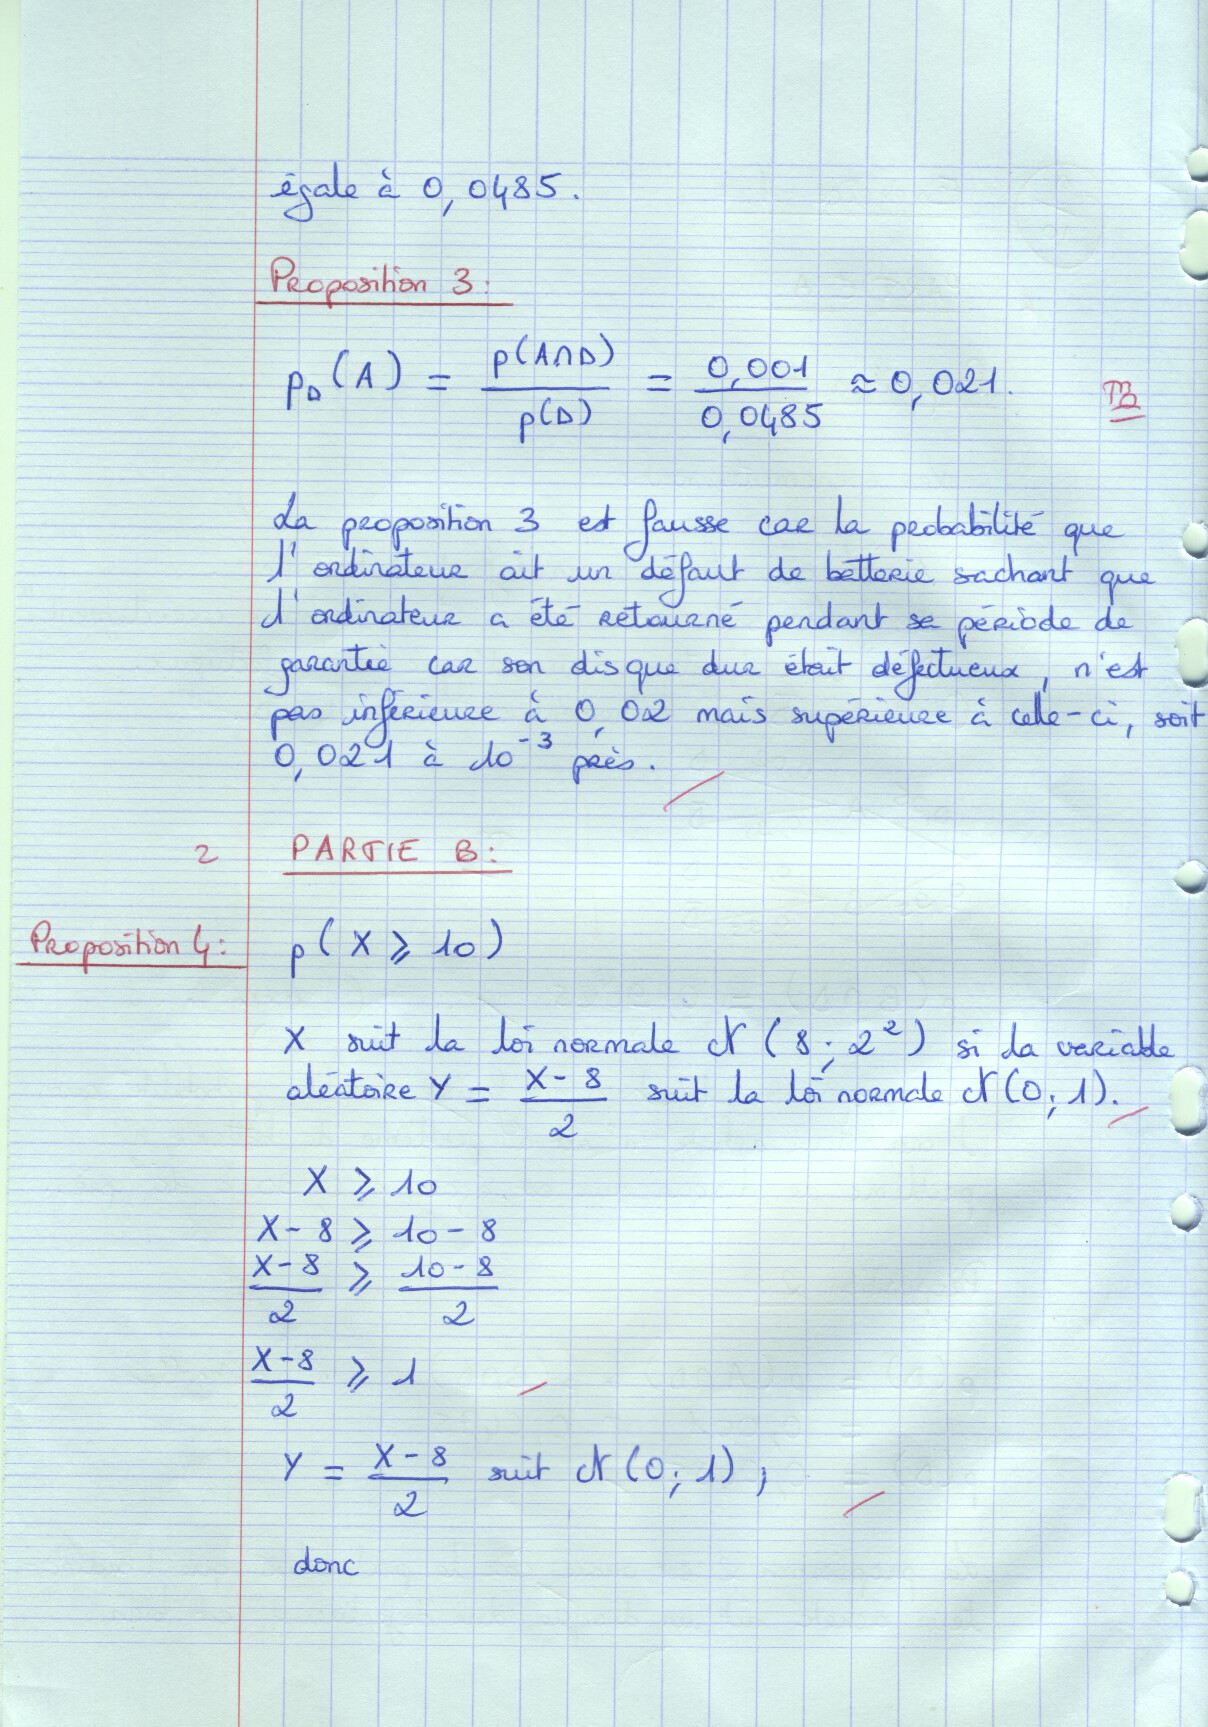 égale à 0,0485.
Proposition 3:
p_D(A) = p(A∩D) / p(D) = 0,001 / 0,0485 ≈ 0,021.
TB
La proposition 3 est fausse car la probabilité que
l'ordinateur ait un défaut de batterie sachant que
l'ordinateur a été retourné pendant sa période de
garantie car son disque dur était défectueux, n'est
pas inférieure à 0,02 mais supérieure à celle-ci, soit
0,021 à 10⁻³ près.
2 PARTIE B:
Proposition 4: p(X ⩾ 10)
X suit la loi normale N(8; 2²) si la variable
aléatoire Y = (X-8)/2 suit la loi normale N(0; 1).
X ⩾ 10
X-8 ⩾ 10-8
(X-8)/2 ⩾ (10-8)/2
(X-8)/2 ⩾ 1
Y = (X-8)/2 suit N(0; 1),
donc